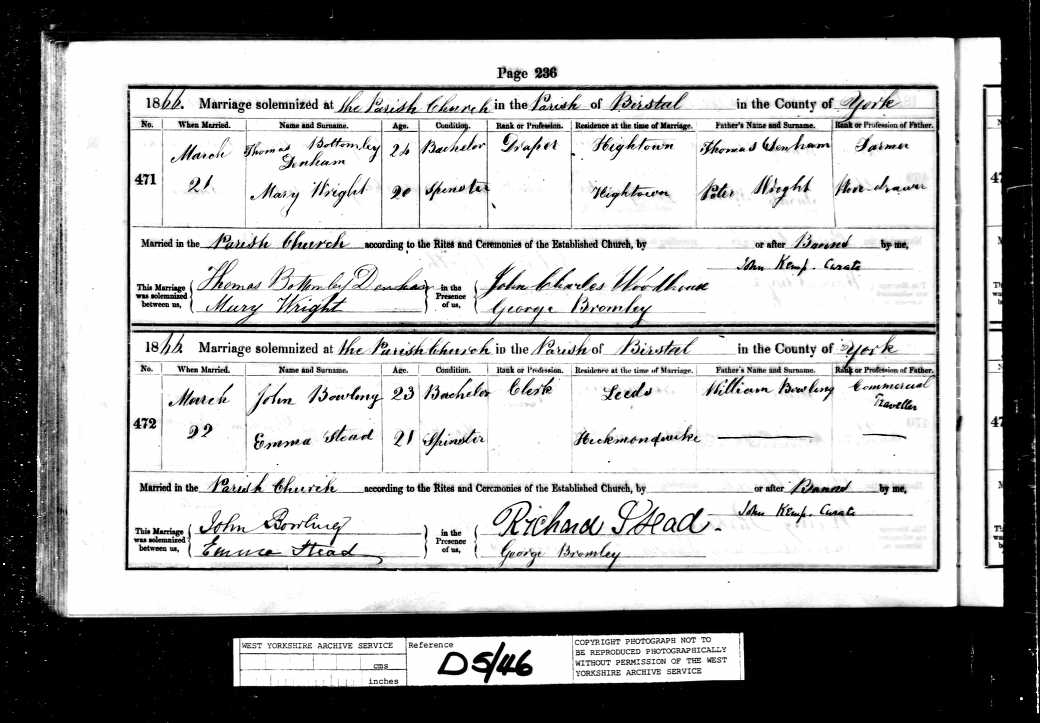 Page 236
1866. Marriage solemnized at the Parish Church in the Parish of Birstal in the County of York
No. When Married. Name and Surname. Age. Condition. Rank or Profession. Residence at the time of Marriage. Father's Name and Surname. Rank or Profession of Father.
471 March 21 Thomas Bottomley Denham 24 Bachelor Draper Hightown Thomas Denham Farmer
Mary Wright 20 Spinster Hightown Peter Wright Wire-drawer
Married in the Parish Church according to the Rites and Ceremonies of the Established Church, by or after Banns by me,
John Kemp. Curate
This Marriage was solemnized between us, Thomas Bottomley Denham in the Presence of us, John Charles Woodhead
Mary Wright George Bromley
1866. Marriage solemnized at the Parish Church in the Parish of Birstal in the County of York
No. When Married. Name and Surname. Age. Condition. Rank or Profession. Residence at the time of Marriage. Father's Name and Surname. Rank or Profession of Father.
472 March 22 John Bowling 23 Bachelor Clerk Leeds William Bowling Commercial Traveller
Emma Stead 21 Spinster Heckmondwike
Married in the Parish Church according to the Rites and Ceremonies of the Established Church, by or after Banns by me,
John Kemp. Curate
This Marriage was solemnized between us, John Bowling in the Presence of us, Richard Stead.
Emma Stead George Bromley
WEST YORKSHIRE ARCHIVE SERVICE
cms
inches
Reference
D5/46
COPYRIGHT PHOTOGRAPH NOT TO
BE REPRODUCED PHOTOGRAPHICALLY
WITHOUT PERMISSION OF THE WEST
YORKSHIRE ARCHIVE SERVICE